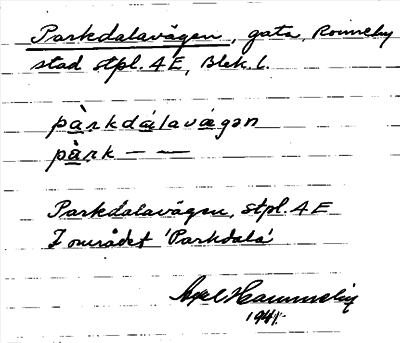 Parkdalavägen, gata, Ronneby
stad stpl. 4 E, Blek. l.
pàrkdálavägən
pàrk — —
Parkdalavägen, stpl. 4 E
I området 'Parkdala'
Axel Hammelin
1941.